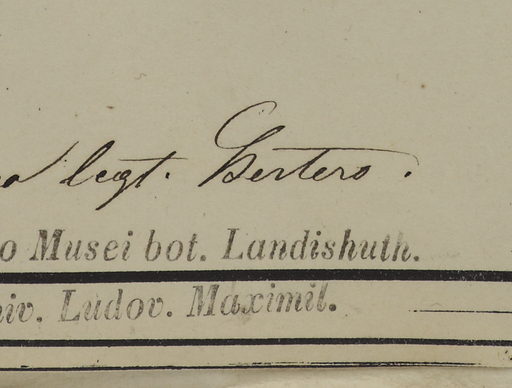 legt. Bertero.
o Musei bot. Landishuth.
niv. Ludov. Maximil.